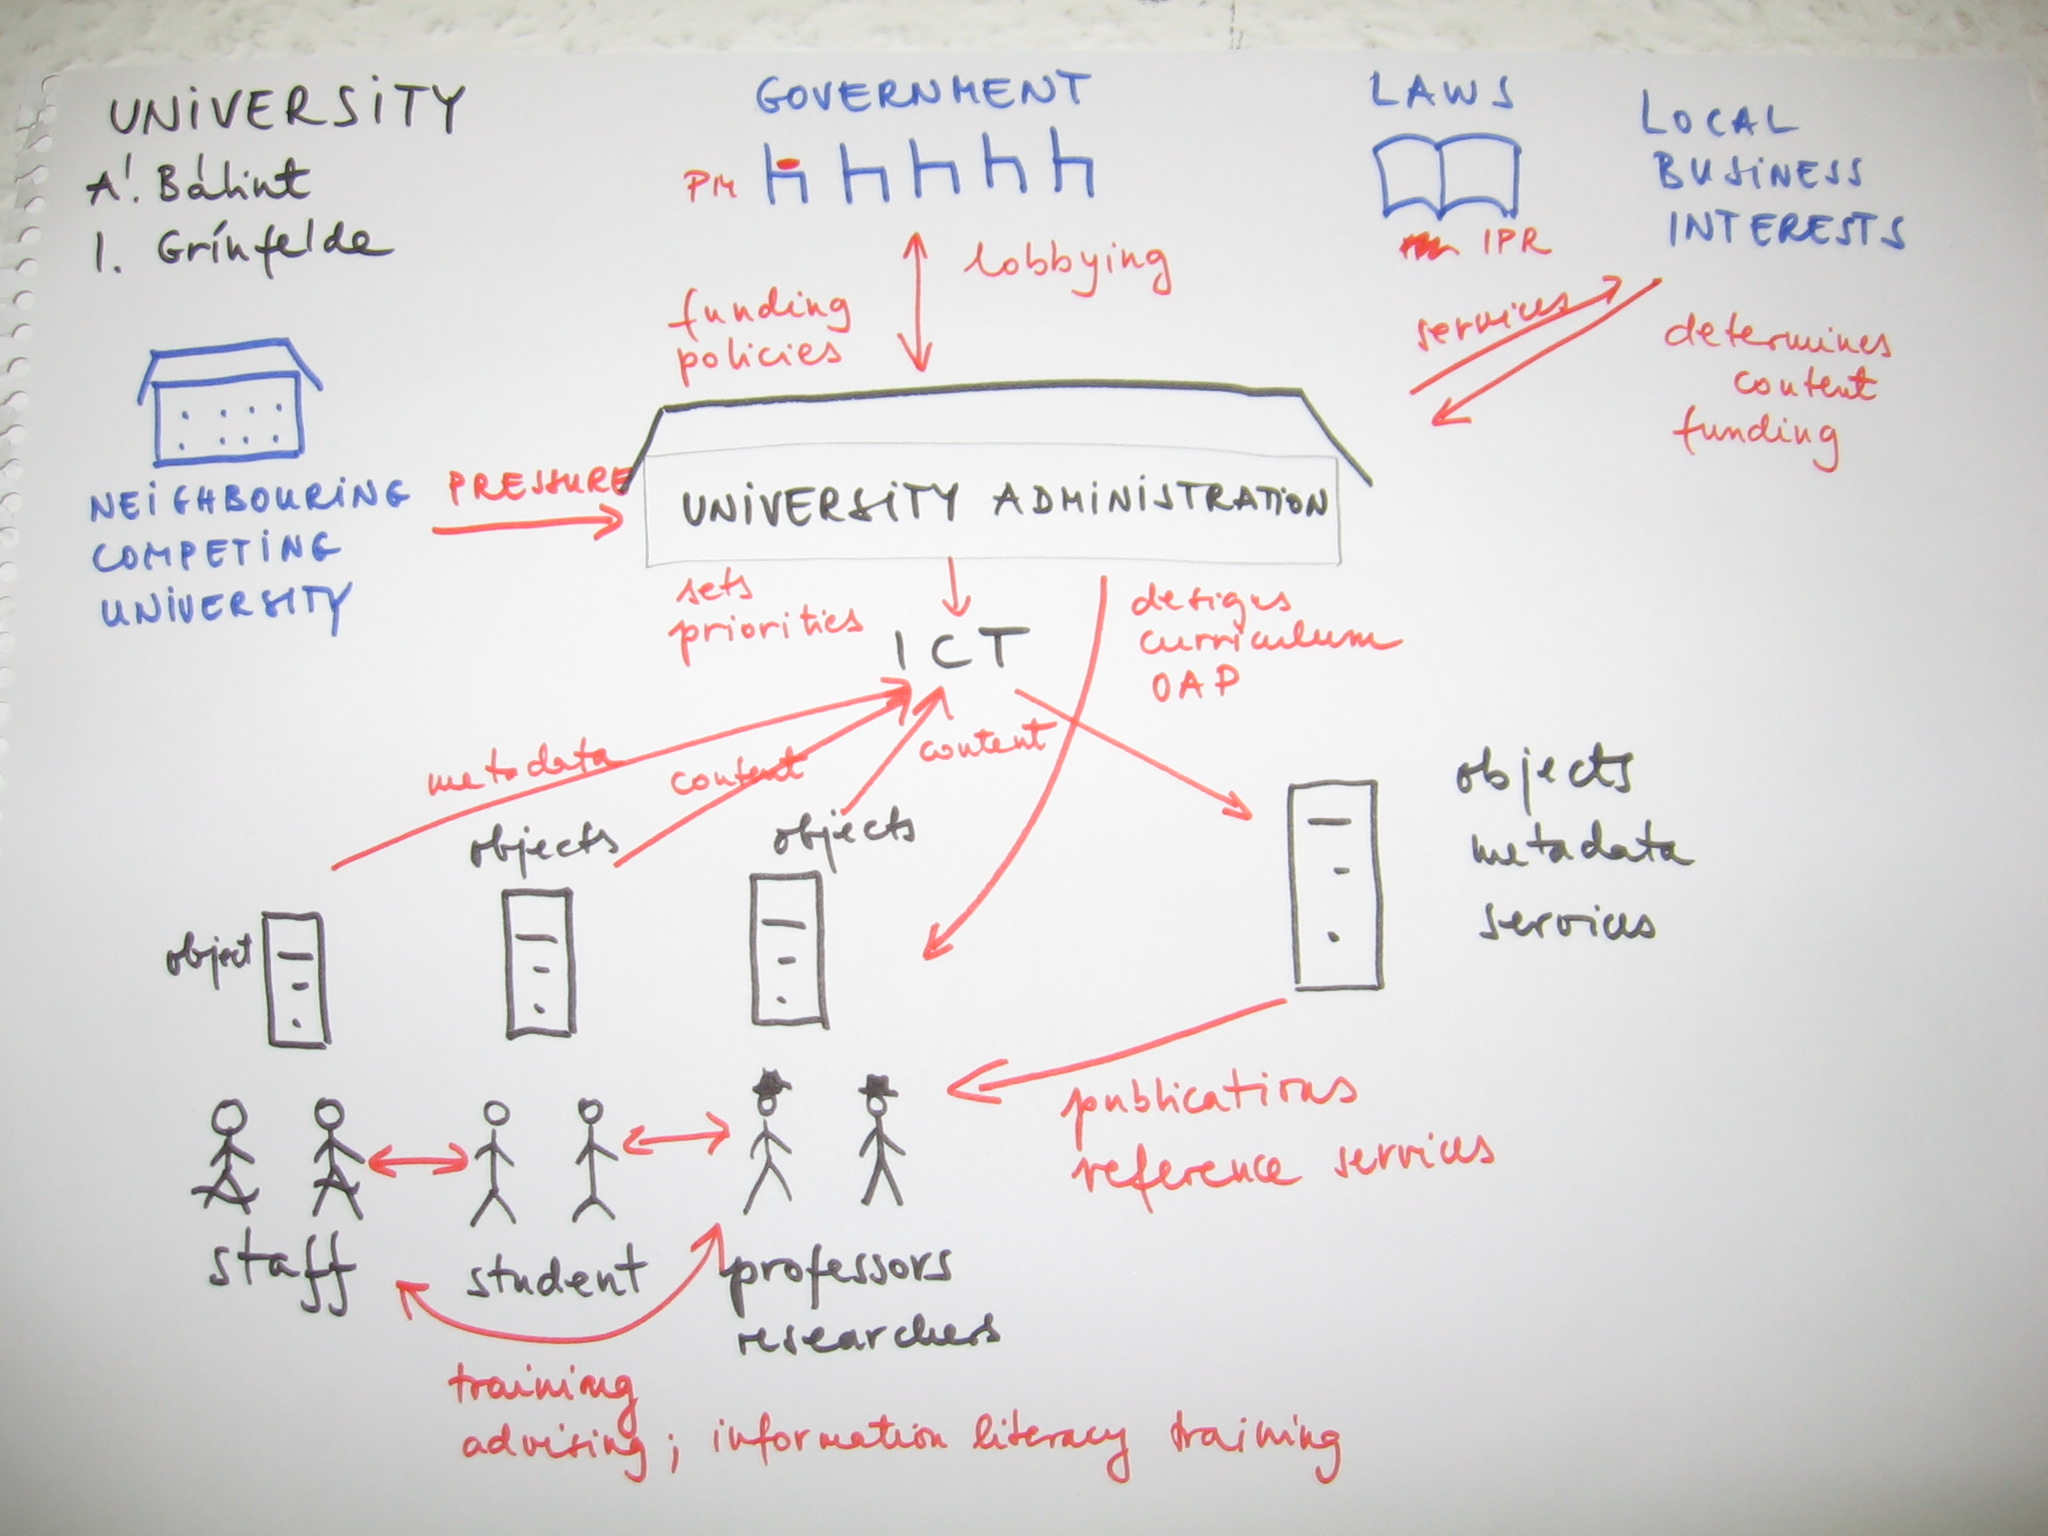 UNIVERSITY
Á. Bálint
I. Grínfelde
GOVERNMENT
PM
LAWS
IPR
LOCAL
BUSINESS
INTERESTS
lobbying
funding
policies
services
determines
content
funding
NEIGHBOURING
COMPETING
UNIVERSITY
PRESSURE
UNIVERSITY ADMINISTRATION
sets
priorities
ICT
designs
curriculum
OAP
metadata
content
content
objects
objects
object
objects
metadata
services
publications
reference services
staff
student
professors
researchers
training
advising; information literacy training